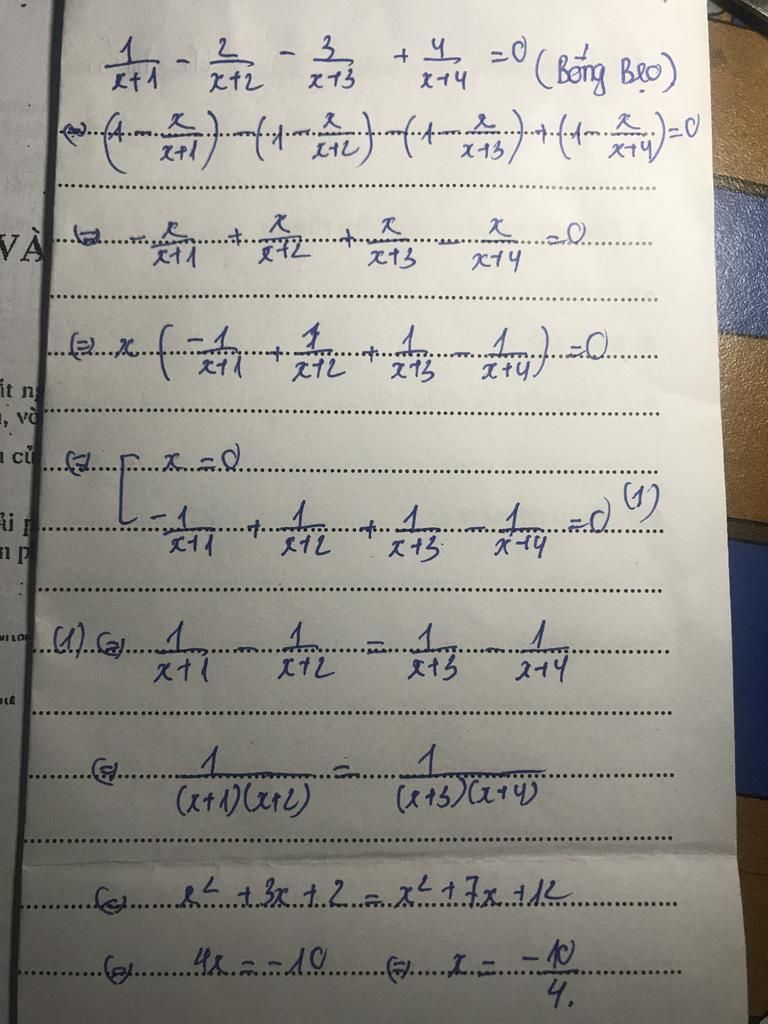 1/(x+1) - 2/(x+2) - 3/(x+3) + 4/(x+4) = 0 (Bống Bẹo)
⇔ (1 - x/(x+1)) - (1 - x/(x+2)) - (1 - x/(x+3)) + (1 - x/(x+4)) = 0
⇔ - x/(x+1) + x/(x+2) + x/(x+3) - x/(x+4) = 0
⇔ x (-1/(x+1) + 1/(x+2) + 1/(x+3) - 1/(x+4)) = 0
⇔ [ x = 0
-1/(x+1) + 1/(x+2) + 1/(x+3) - 1/(x+4) = 0 (1)
(1) ⇔ 1/(x+1) - 1/(x+2) = 1/(x+3) - 1/(x+4)
⇔ 1/((x+1)(x+2)) = 1/((x+3)(x+4))
⇔ x² + 3x + 2 = x² + 7x + 12
⇔ 4x = -10 ⇔ x = -10/4.
VÀ